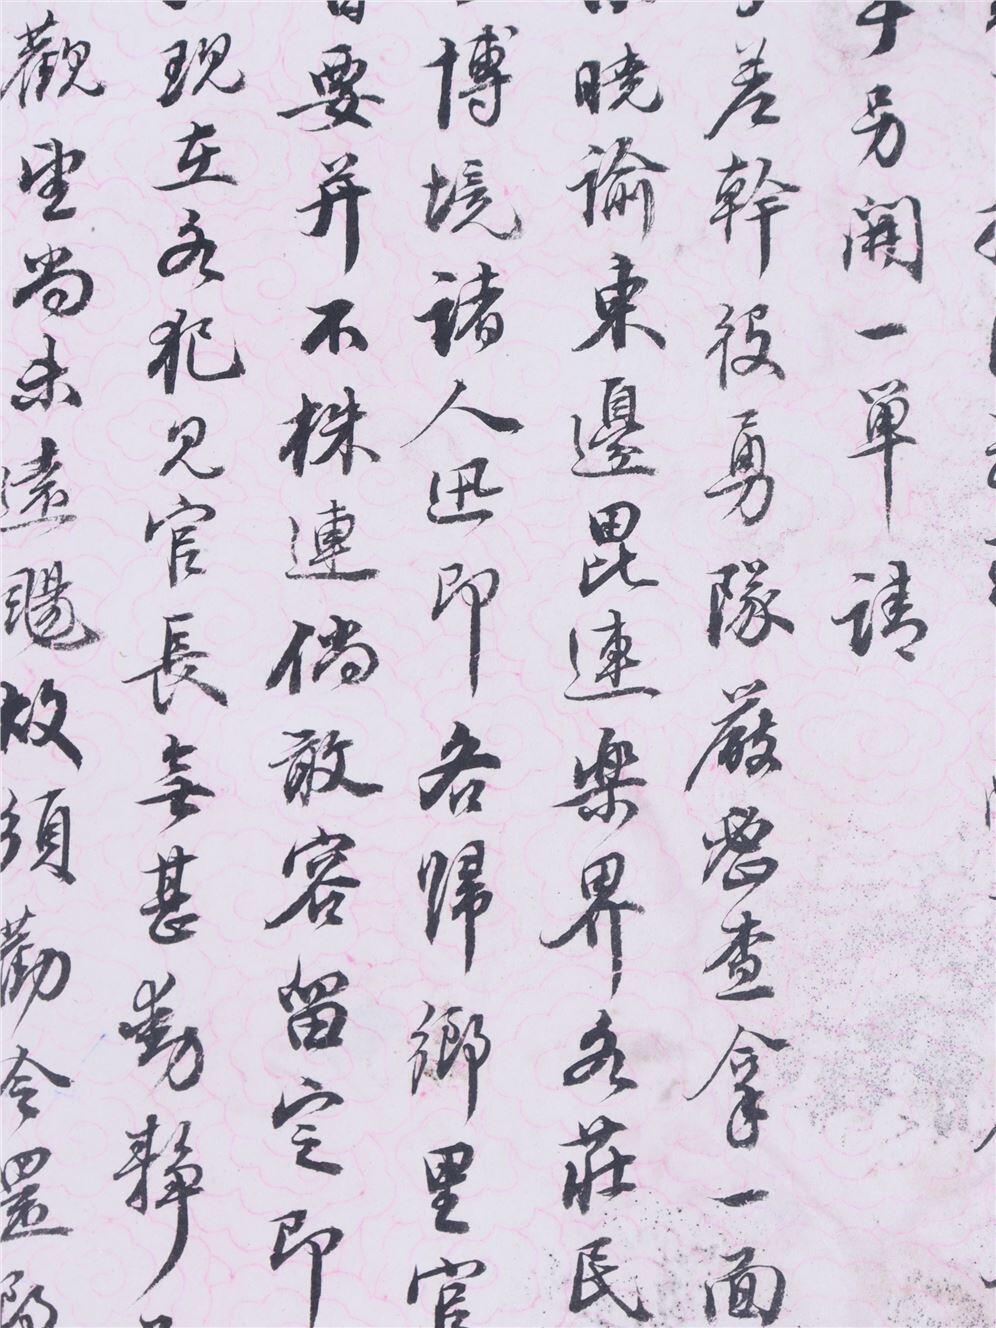 另開一單請
差幹役勇隊嚴密查拿一面
曉諭東邊毘連樂界各莊民
博境諸人迅即各歸鄉里官
要并不株連倘敢容留定即
現在各犯見官長無甚動靜
觀望尚未遠颺故須勸令置